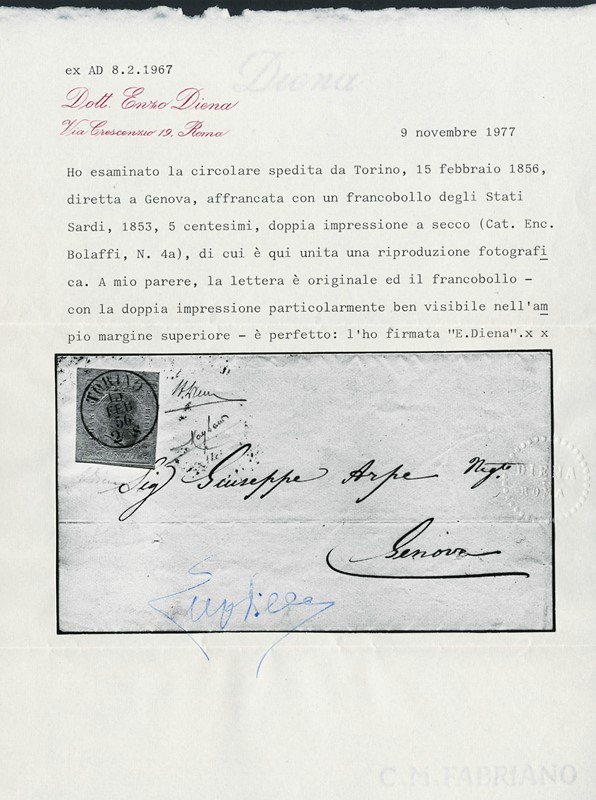 Diena
ex AD 8.2.1967
Dott. Enzo Diena
Via Crescenzio 19, Roma
9 novembre 1977
Ho esaminato la circolare spedita da Torino, 15 febbraio 1856,
diretta a Genova, affrancata con un francobollo degli Stati
Sardi, 1853, 5 centesimi, doppia impressione a secco (Cat. Enc.
Bolaffi, N. 4a), di cui è qui unita una riproduzione fotografi
ca. A mio parere, la lettera è originale ed il francobollo -
con la doppia impressione particolarmente ben visibile nell'am
pio margine superiore - è perfetto: l'ho firmata "E.Diena".x x
TORINO
15
FEB
56
2 S
Sig Giuseppe Arpe Negte
DIENA
ROMA
Genova
C.M.FABRIANO